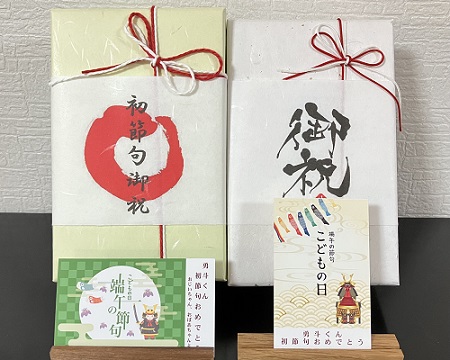 初節句御祝
御祝
こどもの日
端午の節句
勇斗くん
初節句おめでとう
おじいちゃん、おばあちゃんより
端午の節句
こどもの日
勇斗くん
初節句おめでとう